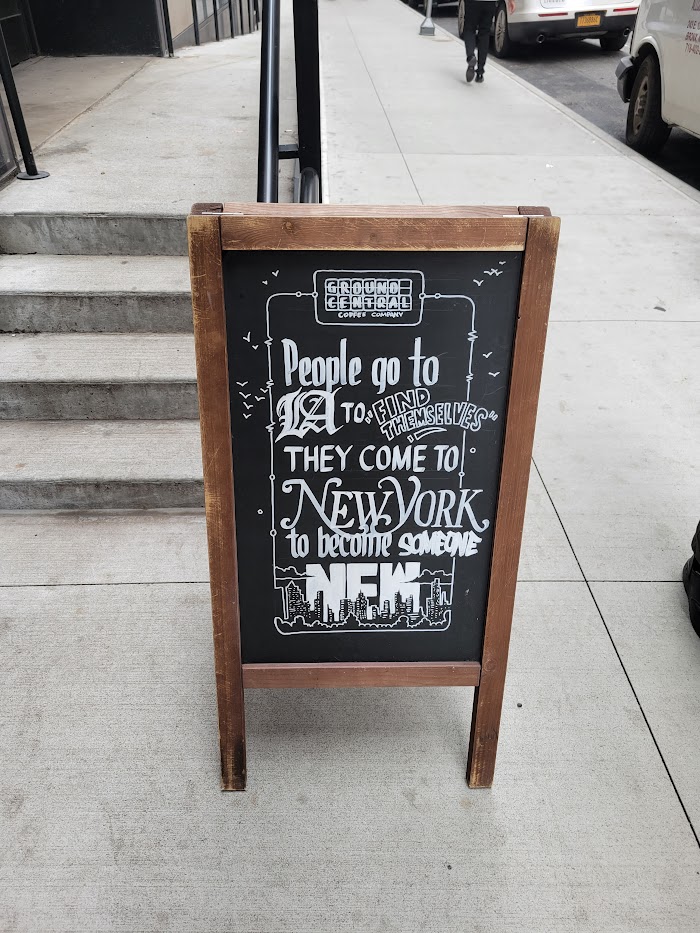 GROUND
CENTRAL
COFFEE COMPANY
People go to
LA TO "FIND
THEMSELVES"
THEY COME TO
NEW YORK
to become SOMEONE
NEW